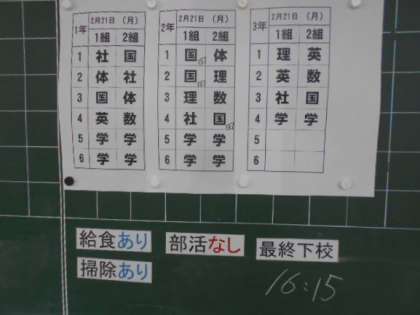 1年 2月21日 (月)
1組 2組
1 社 国
2 体 社
3 国 体
4 英 数
5 学 学
6 学 学
2年 2月21日 (月)
1組 2組
1 国 体
2 国 理
3 理 数
4 社 国
5 学 学
6 学 学
3年 2月21日 (月)
1組 2組
1 理 英
2 英 数
3 社 国
4 学 学
5
6
給食あり 部活なし 最終下校
掃除あり 16:15